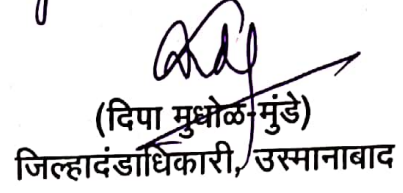 (दिपा मुधोळ-मुंडे)
जिल्हादंडाधिकारी, उस्मानाबाद